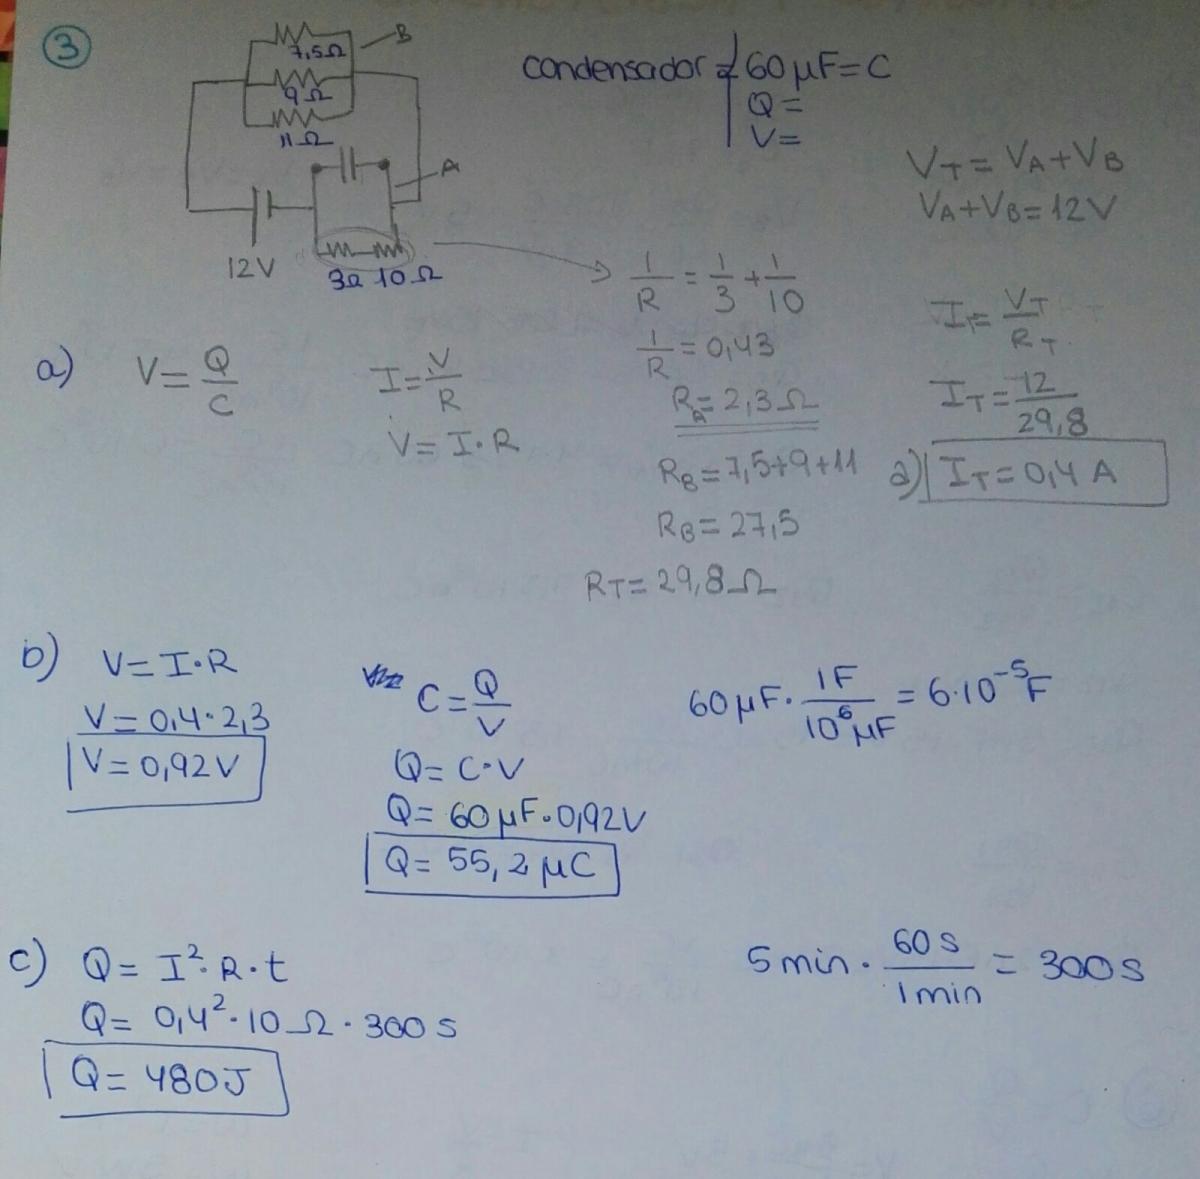 3
7,5Ω
B
9Ω
11Ω
A
12V
3Ω 10Ω
condensador 60 μF = C
Q =
V =
V_T = V_A + V_B
V_A + V_B = 12V
1/R = 1/3 + 1/10
1/R = 0,43
R_A = 2,3Ω
R_B = 7,5+9+11
R_B = 27,5
R_T = 29,8Ω
I_T = V_T/R_T
I_T = 12/29,8
a) I_T = 0,4 A
a) V = Q/C
I = V/R
V = I·R
b) V = I·R
V = 0,4·2,3
V = 0,92V
C = Q/V
Q = C·V
Q = 60 μF·0,92V
Q = 55,2 μC
60 μF · 1F/10⁶ μF = 6·10⁻⁵ F
c) Q = I²·R·t
Q = 0,4²·10 Ω·300 s
Q = 480J
5 min · 60 s/1 min = 300 s